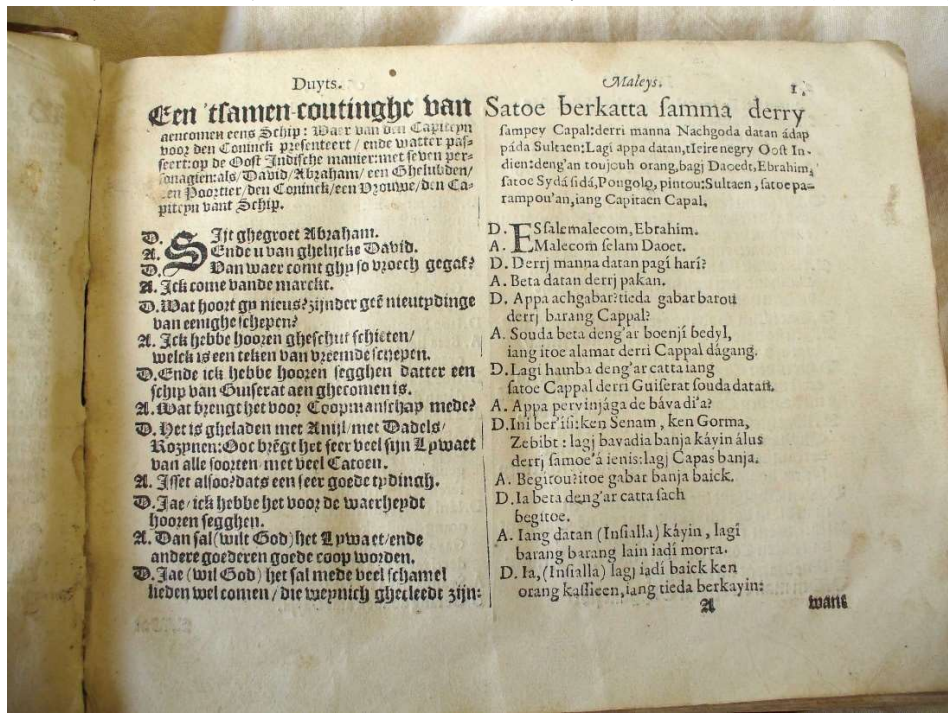 Duyts.
Een 'tsamen-coutinghe van
aencomen eens Schip: Waer van den Capiteyn
voor den Coninck presenteert / ende watter pas-
seert: op de Oost Indische manier: met seven per-
sonagien: als / David / Abraham / een Ghelubden /
een Poortier / den Coninck / een Vrouwe / den Ca-
piteyn vant Schip.
D. Sijt ghegroet Abraham.
A. Ende u van ghelijcke David.
D. Van waer comt ghy so vroech gegaē?
A. Ick come vande marckt.
D. Wat hoort gy nieus? zijnder geē nieu tydinge
van eenighe schepen?
A. Ick hebbe hooren gheschut schieten /
welck is een teken van vreemde schepen.
D. Ende ick hebbe hooren segghen datter een
schip van Guiserat aen ghecomen is.
A. Wat brengt het voor Coopmanschap mede?
D. Het is gheladen met Anijl / met Dadels /
Rozynen: Ooc brēgt het seer veel fijn Lywaet
van alle soorten met veel Catoen.
A. Isset alsoo? dats een seer goede tydingh.
D. Jae / ick hebbe het voor de waerheydt
hooren segghen.
A. Dan sal (wilt God) het Lywaet / ende
andere goederen goede coop worden.
D. Jae (wil God) het sal mede veel schamel
lieden wel comen / die weynich ghecleedt zijn:
Maleys.
1.
Satoe berkatta samma derry
sampey Capal: derri manna Nachgoda datan ádap
páda Sultaen: Lagi appa datan, tseire negry Oost In-
dien: deng'an toujouh orang, bagj Daoedt, Ebrahim,
satoe Sydá sidá, Pongolo, pintou: Sultaen, satoe pa-
rampou'an, iang Capitaen Capal,
D. ESsalemalecom, Ebrahim.
A. Malecom selam Daoet.
D. Derrj manna datan pagí harí?
A. Beta datan derrj pakan.
D. Appa achgabar? tieda gabar barou
derrj barang Cappal?
A. Souda beta deng'ar boenjí bedyl,
iang itoe alamat derri Cappal dágang.
D. Lagi hamba deng'ar catta iang
satoe Cappal derri Guiserat souda datan.
A. Appa pervinjága de báva di'a?
D. Ini ber'isi: ken Senam, ken Gorma,
Zebibt: lagj bavadia banja káyin álus
derrj samoe'á ienis: lagj Capas banja.
A. Begitou? itoe gabar banja baick.
D. Ia beta deng'ar catta sach
begitoe.
A. Iang datan (Insialla) káyin, lagi
barang barang lain iadí morra.
D. Ia, (Insialla) lagj iadí baick ken
orang kassieen, iang tieda berkayin:
A want